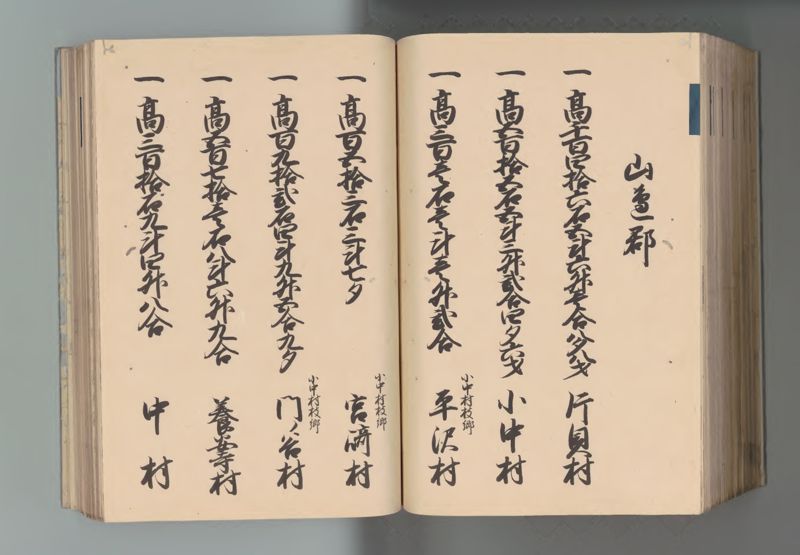 山邉郡
一高千百四拾六石五斗六升壱合八夕八才 片貝村
一高六百拾六石五斗三升弐合四夕六才 小中村
一高三百壱石壱斗壱升弐合 平沢村
小中村枝郷
一高百五拾三石三斗七夕 宮﨑村
小中村枝郷
一高百九拾弐石四斗九升六合九夕 門ノ谷村
小中村枝郷
一高五百七拾壱石八斗六升九合 養安寺村
一高三百拾石九斗四升八合 中村